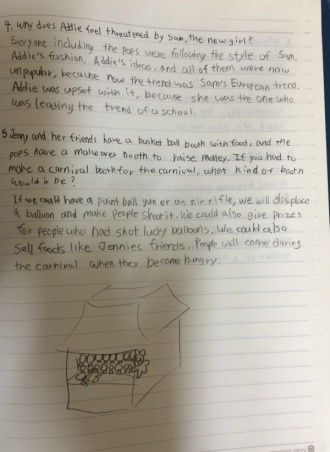 4. Why does Addie feel threatened by Sam, the new girl?
Everyone including the pops were following the style of Sam.
Addie's fashion, Addie's ideas, and all of them were now
unpopular, because now the trend was Sam's European trend.
Addie was upset with it, because she was the one who
was leading the trend of a school.
5. Jenny and her friends have a busket ball booth with food, and the
pops have a makeover booth to raise money. If you had to
make a carnival booth for the carnival, what kind of booth
would it be?
If we could have a paint ball gun or an air rifle, we will displace
a balloon and make people shoot it. We could also give prizes
for people who had shot lucky balloons. We could also
sell foods like Jennies friends. People will come during
the carnival when they become hungry.